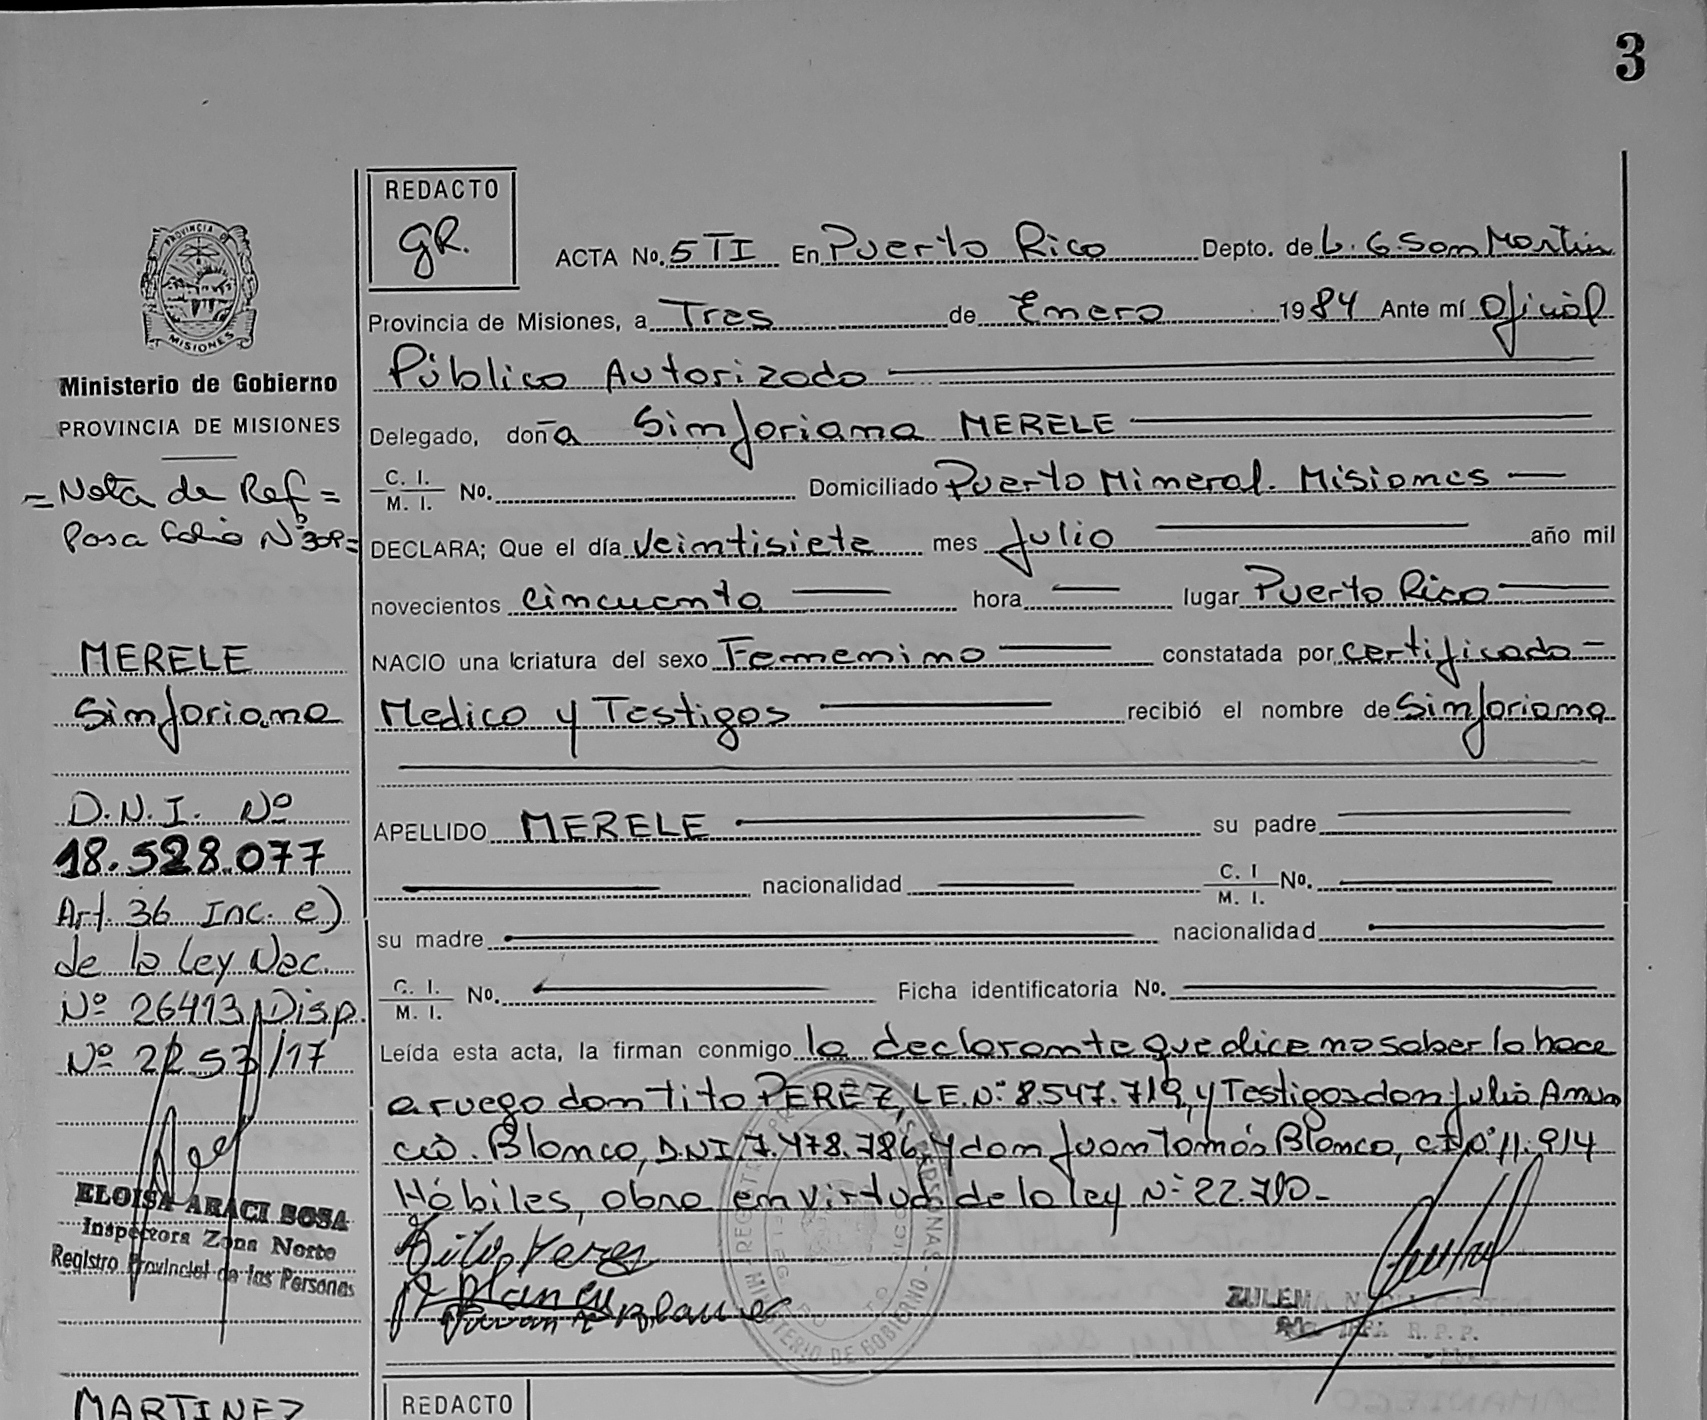 3
REDACTO
gR.
ACTA No. 5 TI En Puerto Rico Depto. de L. G. San Martin
Provincia de Misiones, a Tres de Enero 1984 Ante mí Oficial
Público Autorizado
Delegado, doña Simforiana MERELE
C. I.
M. I. No. Domiciliado Puerto Mineral. Misiones
DECLARA; Que el día veintisiete mes Julio año mil
novecientos cincuenta hora lugar Puerto Rico
NACIO una criatura del sexo Femenino constatada por certificado
Medico y Testigos recibió el nombre de Simforiana
APELLIDO MERELE su padre
nacionalidad C. I
M. I. No.
su madre nacionalidad
C. I.
M. I. No. Ficha identificatoria No.
Leída esta acta, la firman conmigo la declarante que dice no saber lo hace
a ruego don Tito PEREZ, L.E.Nº 8.547.719, y Testigos don Julio Anun
cio. Blanco, DNI 7.478.786 y don Juan Tomás Blanco, 11.914
Hábiles, obra en virtud de la ley Nº 22.710-
Tito Perez
Blanco
ZULEMA
R. P. P.
REGISTRO PERSONAS - MINISTERIO DE GOBIERNO
PROVINCIA DE
MISIONES
Ministerio de Gobierno
PROVINCIA DE MISIONES
= Nota de Ref =
Pasa folio Nº 308=
MERELE
Simforiana
D.N.I. Nº
18.528.077
Art. 36 Inc. e)
de la Ley Nac.
Nº 26413 Disp.
Nº 2253/17
ELOISA ARACI SOSA
Inspectora Zona Norte
Registro Provincial de las Personas
MARTINEZ
REDACTO